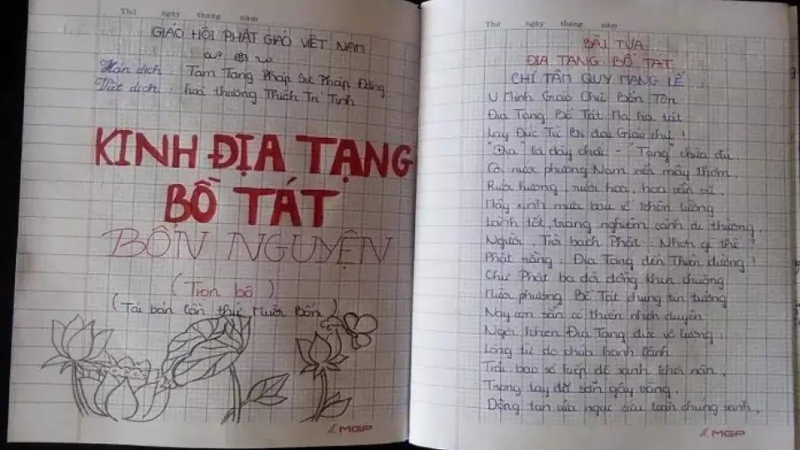 Thứ ngày tháng năm
GIÁO HỘI PHẬT GIÁO VIỆT NAM
Hán dịch : Tam Tạng Pháp Sư Pháp Đăng
Việt dịch : hoà thượng Thích Trí Tịnh
KINH ĐỊA TẠNG
BỒ TÁT
BỔN NGUYỆN
(Trọn bộ)
(Tái bản lần thứ Mười Bốn)
MGP
Thứ ngày tháng năm
BÀI TỰA
ĐỊA TẠNG BỒ TÁT
CHÍ TÂM QUY MẠNG LỄ
U Minh Giáo Chủ Bổn Tôn
Địa Tạng Bồ Tát Ma ha tát
Lạy Đức Từ Bi đại Giáo chủ !
"Địa" là dày chắc - "Tạng" chứa đủ.
Cõi nước phương Nam nổi mây thơm.
Rưới hương, rưới hoa, hoa vần vũ.
Mây xinh mưa báu số không lường
Lành tốt, trang nghiêm cảnh dị thường.
Người, Trời bạch Phật : Nhơn gì thế !
Phật rằng : Địa Tạng đến Thiên đường !
Chư Phật ba đời đồng khen chuộng
Mười phương Bồ Tát chung tin tưởng
Nay con sẵn có thiện nhơn duyên
Ngợi khen Địa Tạng đức vô lượng.
Lòng từ do chứa hạnh lành
Trải bao số kiếp độ sanh khỏi nàn.
Trong tay đã sẵn gậy vàng.
Dộng tan cửa ngục cứu toàn chúng sanh.
MGP